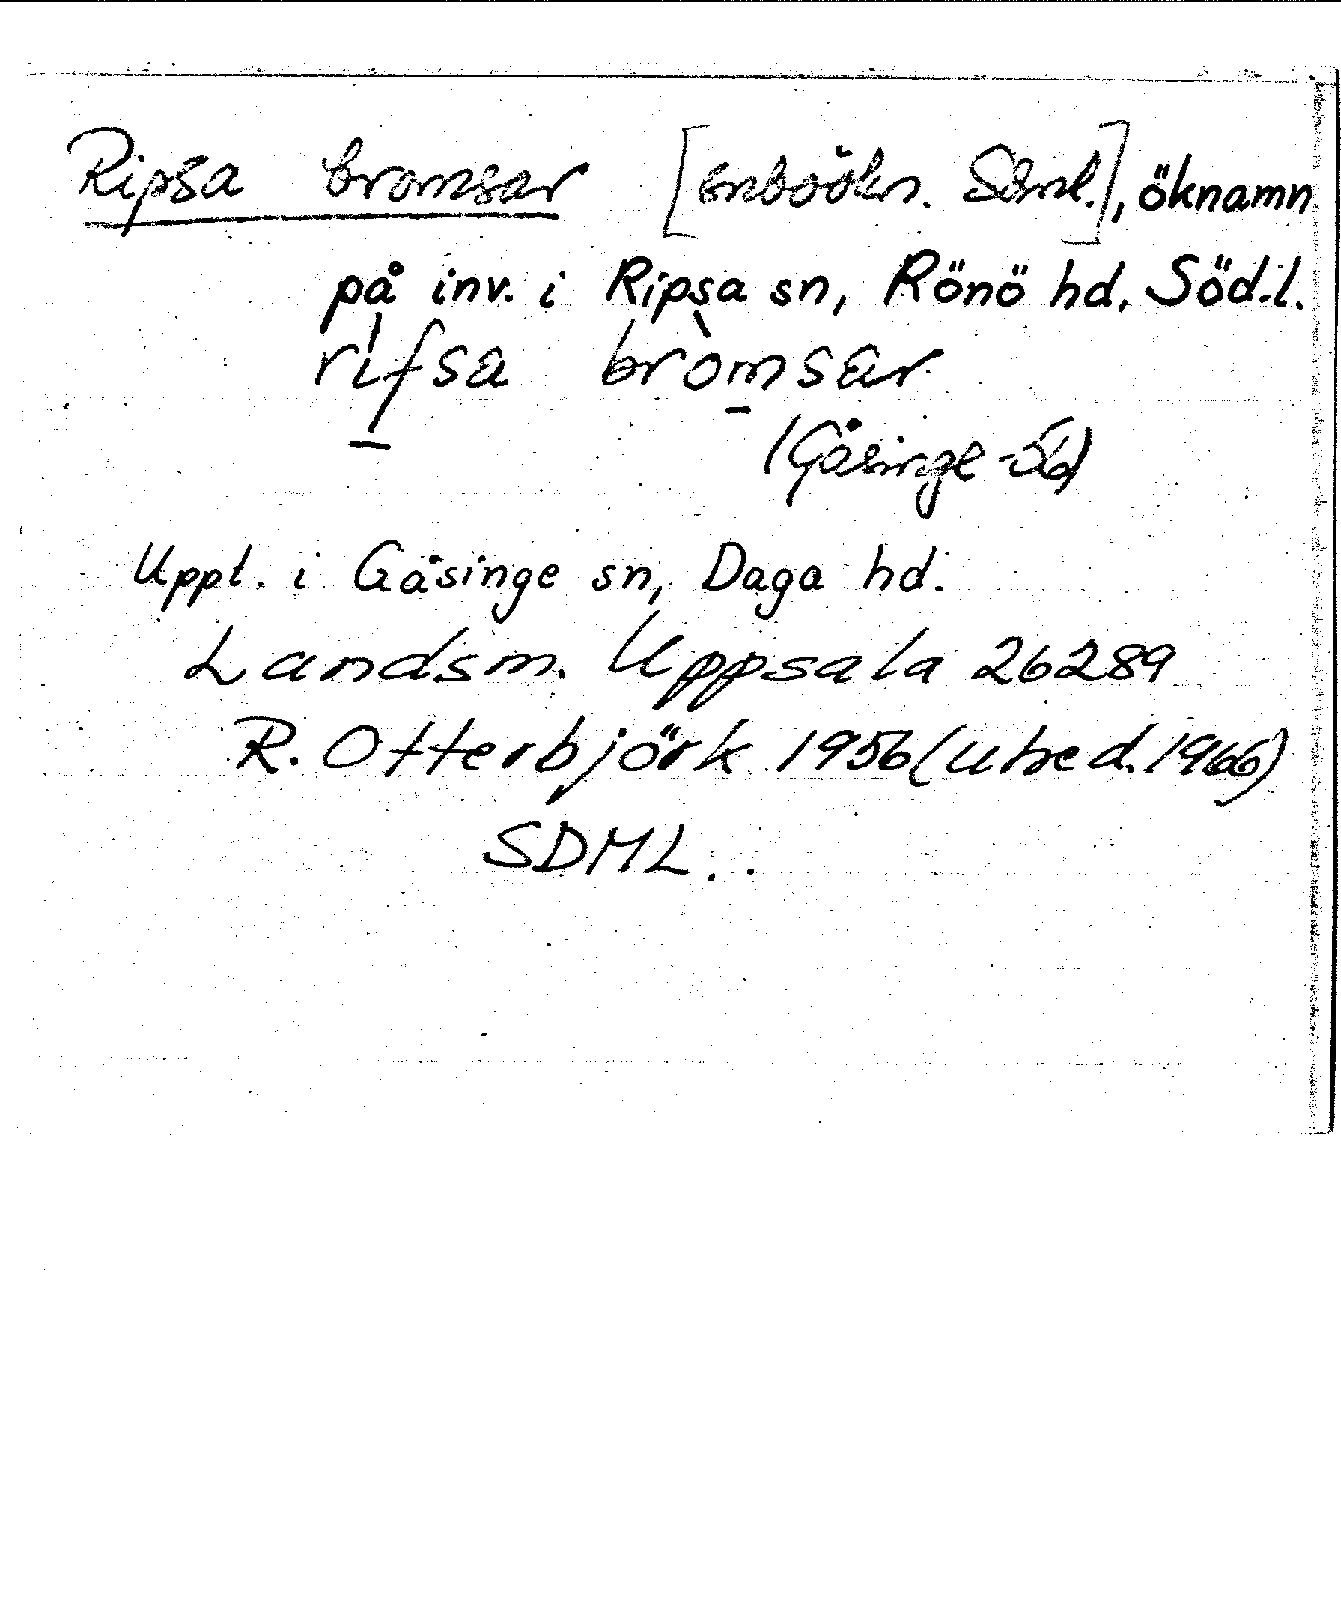 Ripsa bromsar [snboökn. Saml.], öknamn
på inv. i Ripsa sn, Rönö hd, Söd.l.
rifsa bròmsar
(Gåsinge-
Uppt. i Gåsinge sn, Daga hd.
Landsm. Uppsala 26289
R. Otterbjörk 1956 (utred. 1966)
SDML..